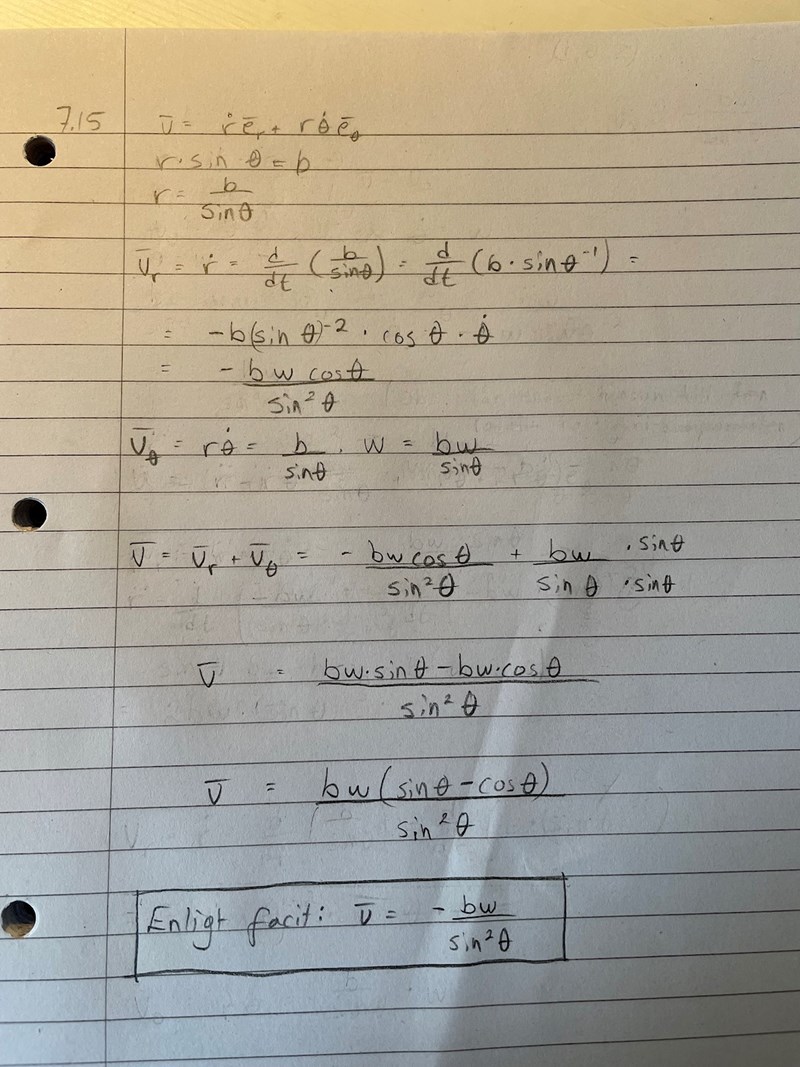 7.15 v̄ = ṙ ē_r + r θ̇ ē_θ
r · sin θ = b
r = b / sin θ
v̄_r = ṙ = d/dt (b / sin θ) = d/dt (b · sin θ^-1) =
= -b (sin θ)^-2 · cos θ · θ̇
= - b w cos θ / sin² θ
v̄_θ = r θ̇ = b / sin θ · w = b w / sin θ
v̄ = v̄_r + v̄_θ = - b w cos θ / sin² θ + b w · sin θ / sin θ · sin θ
v̄ = b w · sin θ - b w · cos θ / sin² θ
v̄ = b w (sin θ - cos θ) / sin² θ
Enligt facit: v̄ = - b w / sin² θ